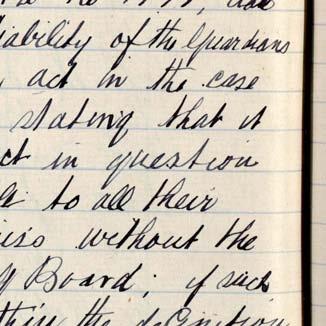 iability of the Guardians
act in the case
stating that it
ct in question
to all their
without the
Board; if such
the definition